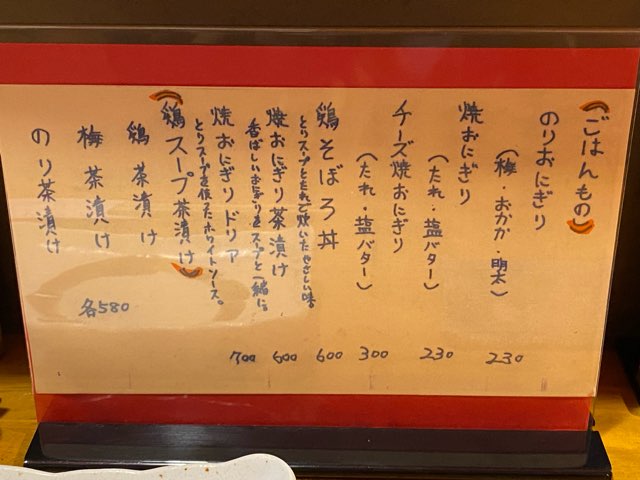 （ごはんもの）
のりおにぎり
（梅・おかか・明太） 230
焼おにぎり
（たれ・塩バター） 230
チーズ焼おにぎり
（たれ・塩バター） 300
鶏そぼろ丼 600
とりスープとたれで炊いたやさしい味。
焼おにぎり茶漬け 600
香ばしいおにぎりをスープと一緒に。
焼おにぎりドリア 700
とりスープを使ったホワイトソース。
（鶏スープ茶漬け）
鶏茶漬け
梅茶漬け 各580
のり茶漬け